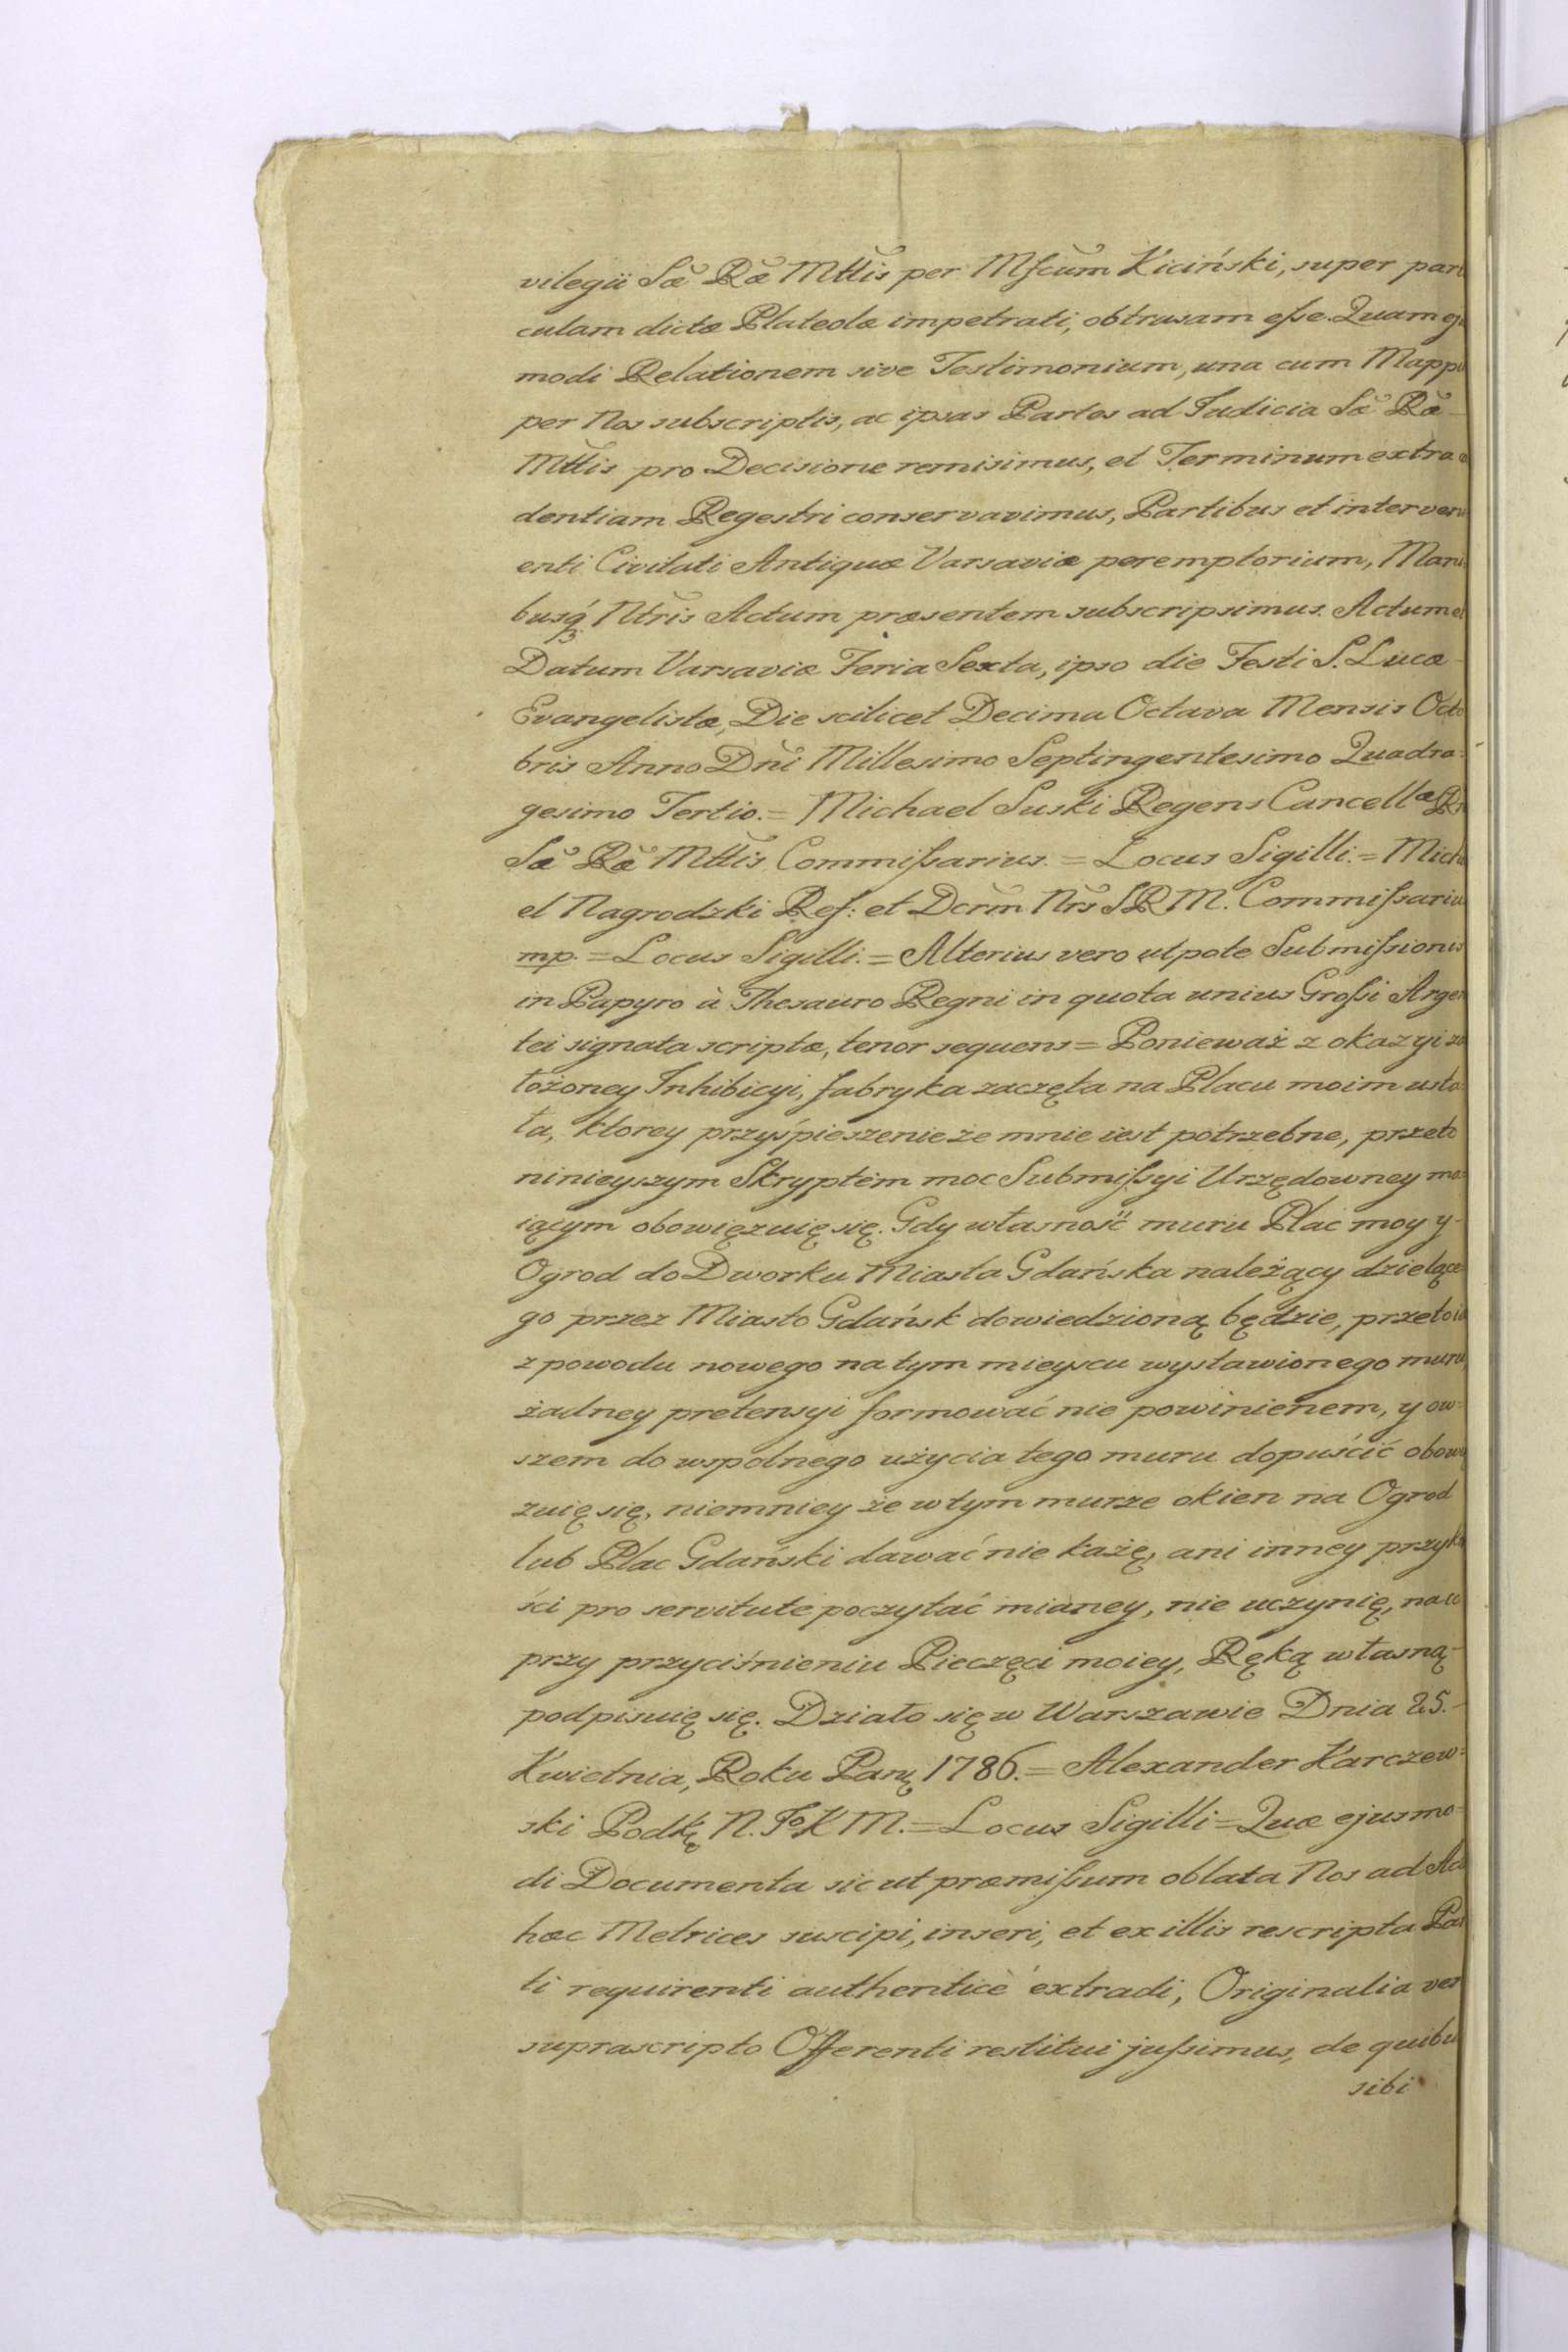 vilegii Sæ Ræ Mttis per Mſcum Kiciński, super par
culam dictæ Plateolæ impetrati, obtrusam eſse. Quam ej
modi Relationem sive Testimonium, una cum Mapp
per Nos subscriptis, ac ipsas Partes ad Judicia Sæ Ræ
Mttis pro Decisione remisimus, et Terminum extra ca
dentiam Regestri conservavimus, Partibus et interveni
enti Civitati Antiquæ Varsaviæ peremptorium, Mani
busq́ Ntris Actum præsentem subscripsimus. Actum et
Datum Varsaviæ Feria Sexta, ipso die Festi S. Lucæ
Evangelistæ, Die scilicet Decima Octava Mensis Octo
bris Anno Dni Millesimo Septingentesimo Quadra:
gesimo Tertio. = Michael Suski Regens Cancellæ R
Sæ Ræ Mttis Commiſsarius. = Locus Sigilli. = Micha
el Nagrodzki Reſ: et Dcrm Nrs SRM. Commiſsariu
mp. = Locus Sigilli. = Alterius vero utpote Submiſsionis
in Papyro à Thesauro Regni in quota unius Groſsi Argen
tei signata scriptæ, tenor sequens = Ponieważ z okazyi za
łożoney Inhibicyi, fabryka zaczęta na Placu moim usta
ła, ktorey przyśpieszenie że mnie iest potrzebne, przeto
ninieyszym Skryptem moc Submiſsyi Urzędowney ma
iącym obowięzuię się. Gdy własność muru Plac moy y
Ogrod do Dworku Miasta Gdańska należący dzielące
go przez Miasto Gdańsk dowiedzioną będzie, przeto ia
z powodu nowego na tym mieyscu wystawionego muru
żadney pretensyi formować nie powinienem, y ow=
szem do wspolnego użycia tego muru dopuścić obowią
zuię się, niemniey że w tym murze okien na Ogrod
lub Plac Gdański dawać nie każę, ani inney przyk
ści pro servitute poczytać mianey, nie uczynię, na co
przy przyciśnieniu Pieczęci moiey, Ręką własną
podpisuię się. Działo się w Warszawie Dnia 25.
Kwietnia, Roku Pang 1786. = Alexander Karczew=
ski Podkę N. Fo K M. = Locus Sigilli = Quæ ejusmo=
di Documenta sicut præmiſsum oblata Nos ad Act
hæc Metrices suscipi, inseri, et ex illis rescripta Par
ti requirenti authenticè extradi, Originalia ver
suprascripto Offerenti restitui juſsimus, de quibu
sibi